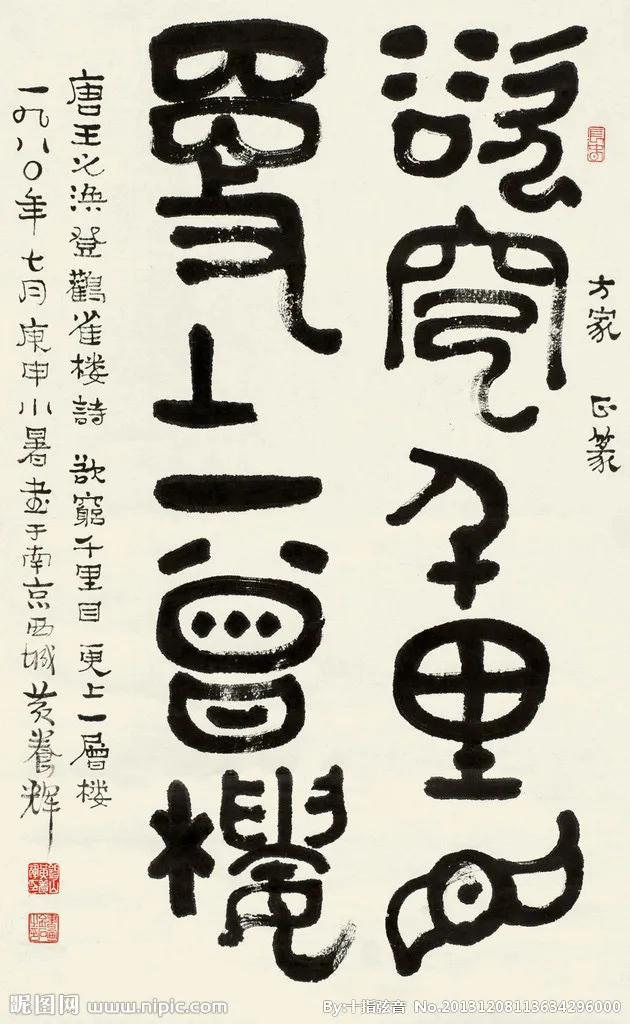 欲穷千里目
更上一曾楼
方家 正篆
唐王之渙登鸛雀楼詩 欲窮千里目 更上一層楼
一九八〇年七月庚申小暑書于南京西城黄養輝
昵图网 www.nipic.com
By:十指弦音 No.20131208113634296000